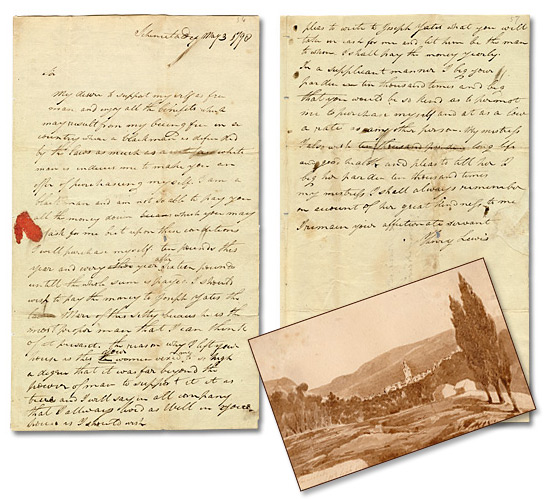 Schenectady May 3 1798
Sir
My desire to support myself as free
man and enjoy all the benefits which
may result from my being free in a
country where a black man is defended
by the laws as much as a white
man is induces me to make you an
offer of purchasing myself. I am a
black man and am not so able to pay you
all the money down which you may
ask for me but upon these conditions
I will purchase myself. Ten pounds this
year and every year after fifteen pounds
untill the whole sum is payed. I should
wish to pay the money to Joseph Yates the
Mayor of this Sitty because he is the
most proper man that I can think
of at present. The reason why I left your
house is this your woman vexed me to so high
a degree that it was far beyond the
power of man to support it it is
true and I will say in all company
that I allways lived as Well in your
house as I should wish
pleas to write to Joseph Yates what you will
take in cash for me and let him be the man
to whom I shall pay the money yearly.
In a suppliant manner I beg your
pardon ten thousand times and beg
that you would be so kind as to permit
me to purchase myself and at as a low
a rate as any other person. My mistress
I also wish long life
and good health and pleas to tell her I
beg her pardon ten thousand times
my mistress I shall always remember
on account of her great kindness to me
I remain your affectionate servant
Henry Lewis